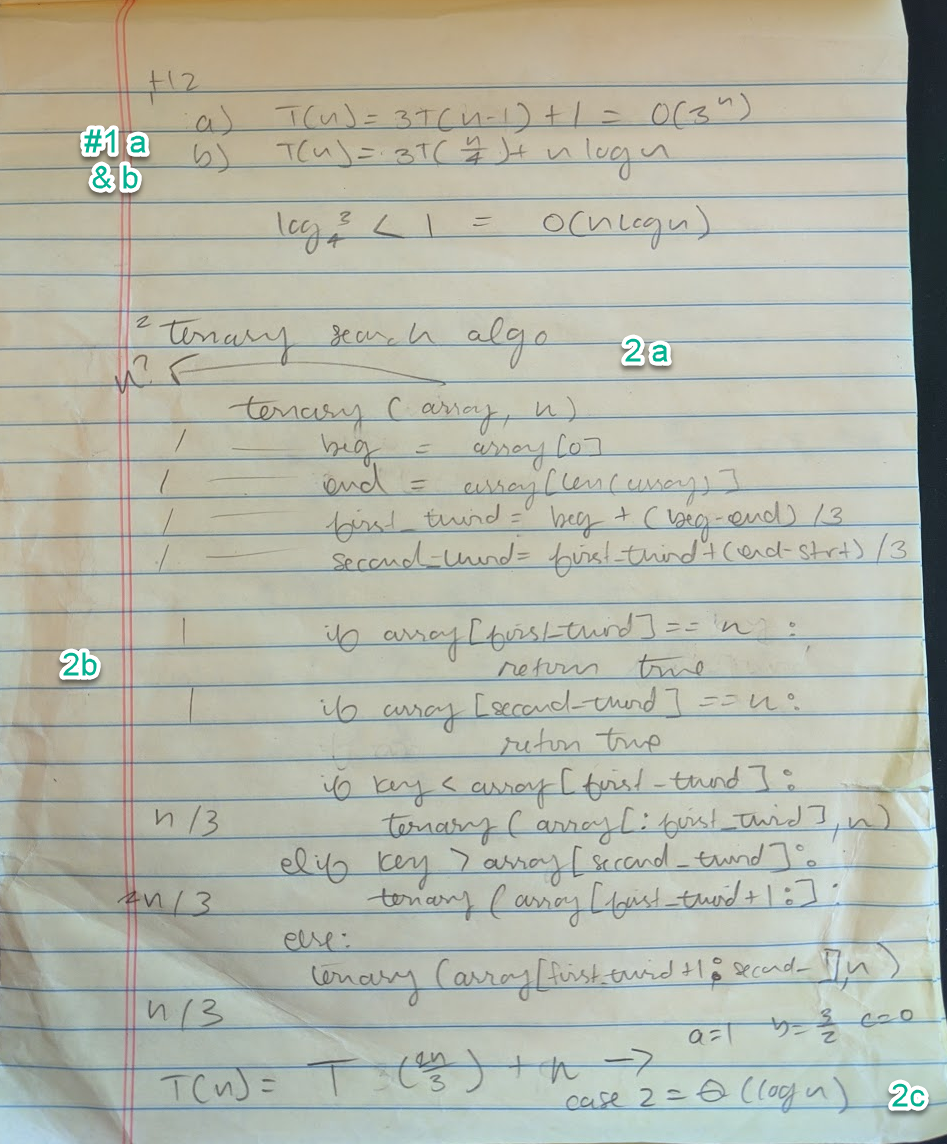 +12
a) T(n) = 3T(n-1) + 1 = O(3^n)
#1 a & b
b) T(n) = 3T(n/4) + n log n
log_4 3 < 1 = O(n log n)
2 ternary search algo
2 a
n?
ternary (array, n)
1 — beg = array[0]
1 — end = array[len(array)]
1 — first_third = beg + (beg-end) /3
1 — second_third = first_third + (end-strt) /3
1 if array[first_third] == n :
2b
return true
1 if array[second_third] == n :
return true
if key < array[first_third] :
n/3 ternary (array[: first_third], n)
elif key > array[second_third] :
2n/3 ternary (array[first_third+1 :] :
else:
ternary (array[first_third+1 : second_ ], n)
n/3
a=1 b=3/2 c=0
T(n) = T (2n/3) + n →
case 2 = Θ(log n)
2c